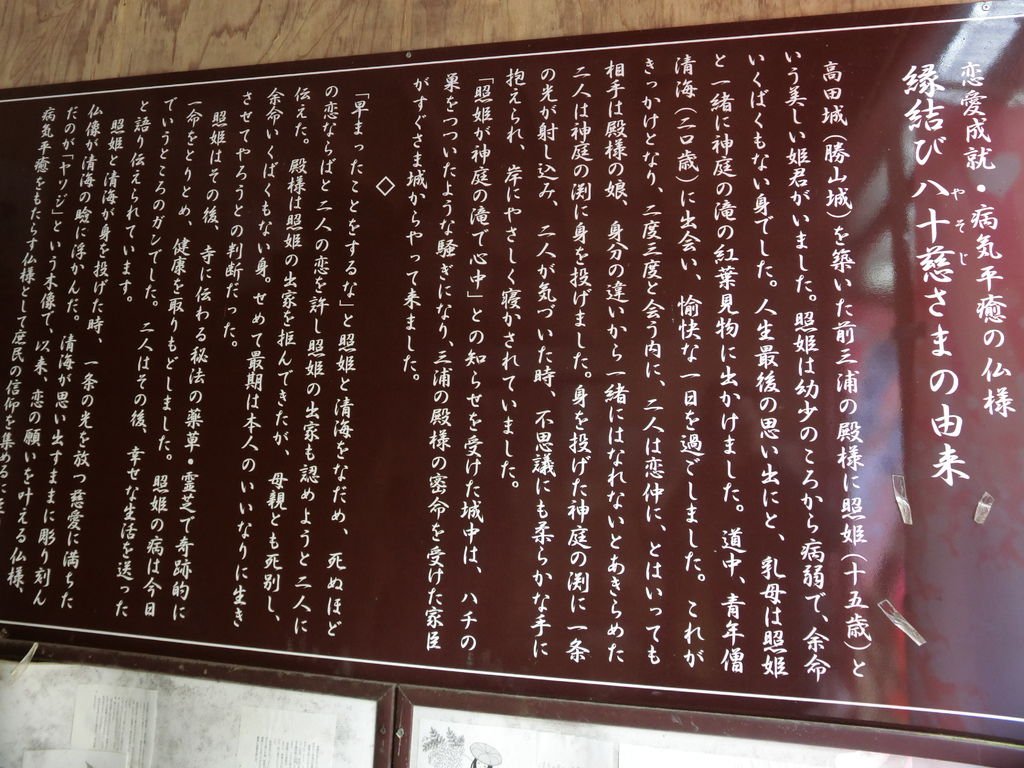 恋愛成就・病気平癒の仏様
縁結び八十慈さまの由来
やそじ
高田城（勝山城）を築いた前三浦の殿様に照姫（十五歳）と
いう美しい姫君がいました。照姫は幼少のころから病弱で、余命
いくばくもない身でした。人生最後の思い出にと、乳母は照姫
と一緒に神庭の滝の紅葉見物に出かけました。道中、青年僧
清海（二〇歳）に出会い、愉快な一日を過ごしました。これが
きっかけとなり、二度三度と会う内に、二人は恋仲に、とはいっても
相手は殿様の娘、身分の違いから一緒にはなれないとあきらめた
二人は神庭の渕に身を投げました。身を投げた神庭の渕に一条
の光が射し込み、二人が気づいた時、不思議にも柔らかな手に
抱えられ、岸にやさしく寝かされていました。
「照姫が神庭の滝で心中」との知らせを受けた城中は、ハチの
巣をつついたような騒ぎになり、三浦の殿様の密命を受けた家臣
がすぐさま城からやって来ました。
◇
「早まったことをするな」と照姫と清海をなだめ、死ぬほど
の恋ならばと二人の恋を許し照姫の出家も認めようと二人に
伝えた。殿様は照姫の出家を拒んできたが、母親とも死別し、
余命いくばくもない身。せめて最期は本人のいいなりに生き
させてやろうとの判断だった。
照姫はその後、寺に伝わる秘法の薬草・霊芝で奇跡的に
一命をとりとめ、健康を取りもどしました。照姫の病は今日
でいうところのガンでした。二人はその後、幸せな生活を送った
と語り伝えられています。
照姫と清海が身を投げた時、一条の光を放つ慈愛に満ちた
仏像が清海の瞼に浮かんだ。清海が思い出すままに彫り刻ん
だのが「ヤソジ」という木像で、以来、恋の願いを叶える仏様、
病気平癒をもたらす仏様として庶民の信仰を集める